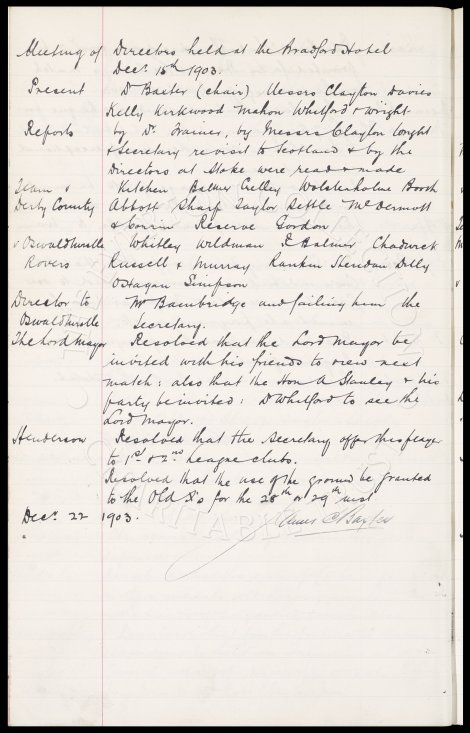 Meeting of Directors held at the Bradford Hotel
Decr 15th 1903.
Present Dr Baxter (chair) Messrs Clayton Davies
Kelly Kirkwood Mahon Whitford & Wright
Reports by Dr , by Messrs Clayton Wright
& Secretary re visit to Scotland & by the
Directors at Stoke were read & made
Team v Kitchen Balmer Crelley Wolstenholme Booth
Derby County Abbott Sharp Taylor Settle McDermott
& Corrin Reserve Gordon
v Oswaldtwistle Whitley Wildman R Balmer Chadwick
Rovers Russell & Murray Rankin Sheridan Dilly
OHagan Simpson
Director to Mr Bainbridge and failing him the
Oswaldtwistle Secretary.
The Lord Mayor Resolved that the Lord Mayor be
invited with his friends to view next
match: also that the Hon A Stanley & his
party be invited: Dr Whitford to see the
Lord Mayor.
Henderson Resolved that the Secretary offer this player
to 1st & 2nd League clubs.
Resolved that the use of the ground be granted
to the Old X's for the 28th or 29th inst
Decr 22 1903. James C Baxter